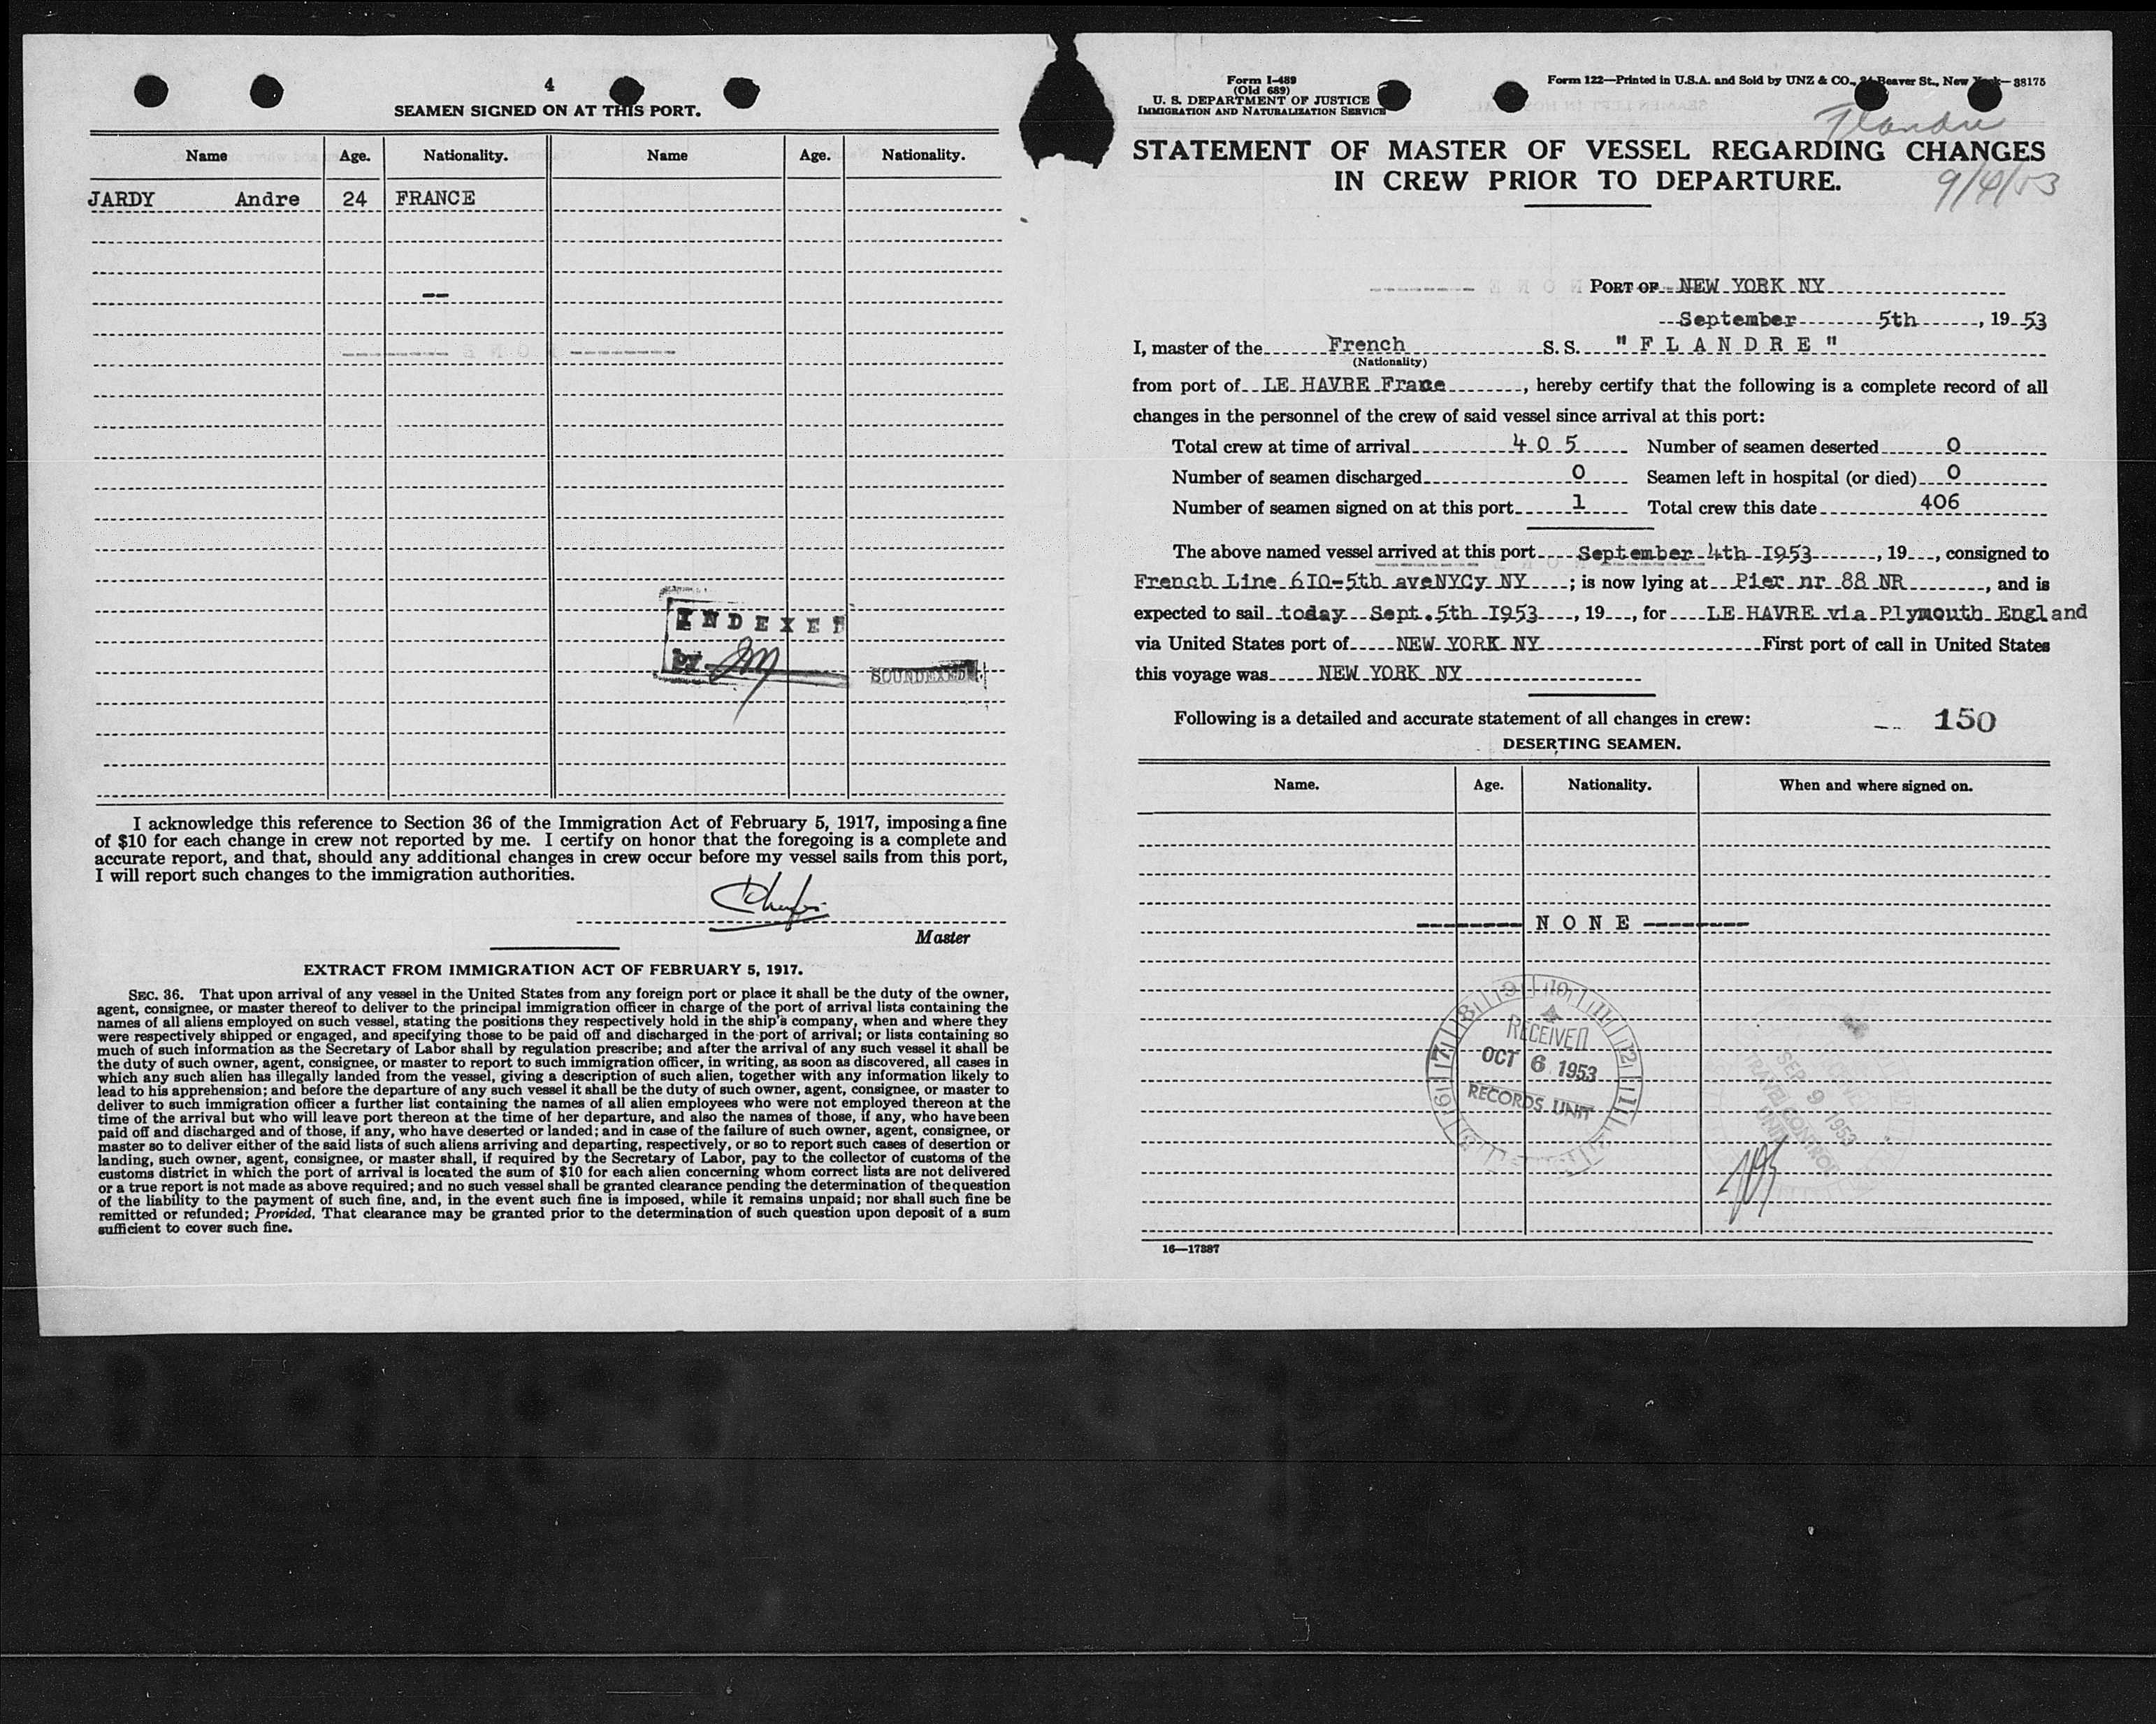 4
SEAMEN SIGNED ON AT THIS PORT.
Name Age. Nationality. Name Age. Nationality.
JARDY Andre 24 FRANCE
INDEXED
by
SOUNDEXED
I acknowledge this reference to Section 36 of the Immigration Act of February 5, 1917, imposing a fine
of $10 for each change in crew not reported by me. I certify on honor that the foregoing is a complete and
accurate report, and that, should any additional changes in crew occur before my vessel sails from this port,
I will report such changes to the immigration authorities.
Master
EXTRACT FROM IMMIGRATION ACT OF FEBRUARY 5, 1917.
SEC. 36. That upon arrival of any vessel in the United States from any foreign port or place it shall be the duty of the owner,
agent, consignee, or master thereof to deliver to the principal immigration officer in charge of the port of arrival lists containing the
names of all aliens employed on such vessel, stating the positions they respectively hold in the ship's company, when and where they
were respectively shipped or engaged, and specifying those to be paid off and discharged in the port of arrival; or lists containing so
much of such information as the Secretary of Labor shall by regulation prescribe; and after the arrival of any such vessel it shall be
the duty of such owner, agent, consignee, or master to report to such immigration officer, in writing, as soon as discovered, all cases in
which any such alien has illegally landed from the vessel, giving a description of such alien, together with any information likely to
lead to his apprehension; and before the departure of any such vessel it shall be the duty of such owner, agent, consignee, or master to
deliver to such immigration officer a further list containing the names of all alien employees who were not employed thereon at the
time of the arrival but who will leave port thereon at the time of her departure, and also the names of those, if any, who have been
paid off and discharged and of those, if any, who have deserted or landed; and in case of the failure of such owner, agent, consignee, or
master so to deliver either of the said lists of such aliens arriving and departing, respectively, or so to report such cases of desertion or
landing, such owner, agent, consignee, or master shall, if required by the Secretary of Labor, pay to the collector of customs of the
customs district in which the port of arrival is located the sum of $10 for each alien concerning whom correct lists are not delivered
or a true report is not made as above required; and no such vessel shall be granted clearance pending the determination of the question
of the liability to the payment of such fine, and, in the event such fine is imposed, while it remains unpaid; nor shall such fine be
remitted or refunded; Provided, That clearance may be granted prior to the determination of such question upon deposit of a sum
sufficient to cover such fine.
Form I-489
(Old 689)
U. S. DEPARTMENT OF JUSTICE
IMMIGRATION AND NATURALIZATION SERVICE
Form 122—Printed in U.S.A. and Sold by UNZ & CO., 24 Beaver St., New York—38175
Flandre
STATEMENT OF MASTER OF VESSEL REGARDING CHANGES
IN CREW PRIOR TO DEPARTURE.
9/4/53
PORT OF NEW YORK NY
September 5th, 19 53
I, master of the French S.S. "FLANDRE"
(Nationality)
from port of LE HAVRE Frace, hereby certify that the following is a complete record of all
changes in the personnel of the crew of said vessel since arrival at this port:
Total crew at time of arrival 405 Number of seamen deserted 0
Number of seamen discharged 0 Seamen left in hospital (or died) 0
Number of seamen signed on at this port 1 Total crew this date 406
The above named vessel arrived at this port September 4th I953, 19 , consigned to
French Line 6I0-5th aveNYCy NY; is now lying at Pier nr 88 NR, and is
expected to sail today Sept.5th I953, 19 , for LE HAVRE via Plymouth England
via United States port of NEW YORK NY First port of call in United States
this voyage was NEW YORK NY
Following is a detailed and accurate statement of all changes in crew: 150
DESERTING SEAMEN.
Name. Age. Nationality. When and where signed on.
NONE
RECEIVED
OCT 6 1953
RECORDS UNIT
SEP 9 1953
TRAVEL CONTROL
UNIT
16—17387